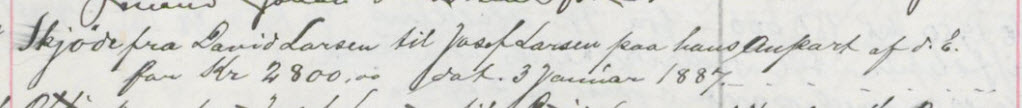 Skjøde fra David Larsen til Josef Larsen paa hans Anpart af d. E.
for Kr 2800,00 dat. 3 Januar 1887.